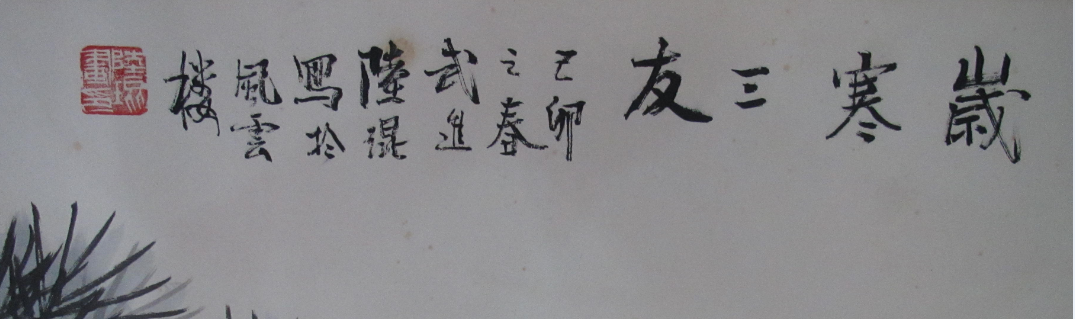 歲寒三友
己卯
之春
武進
陸琨
寫於
風雲
樓
陸琨畫印